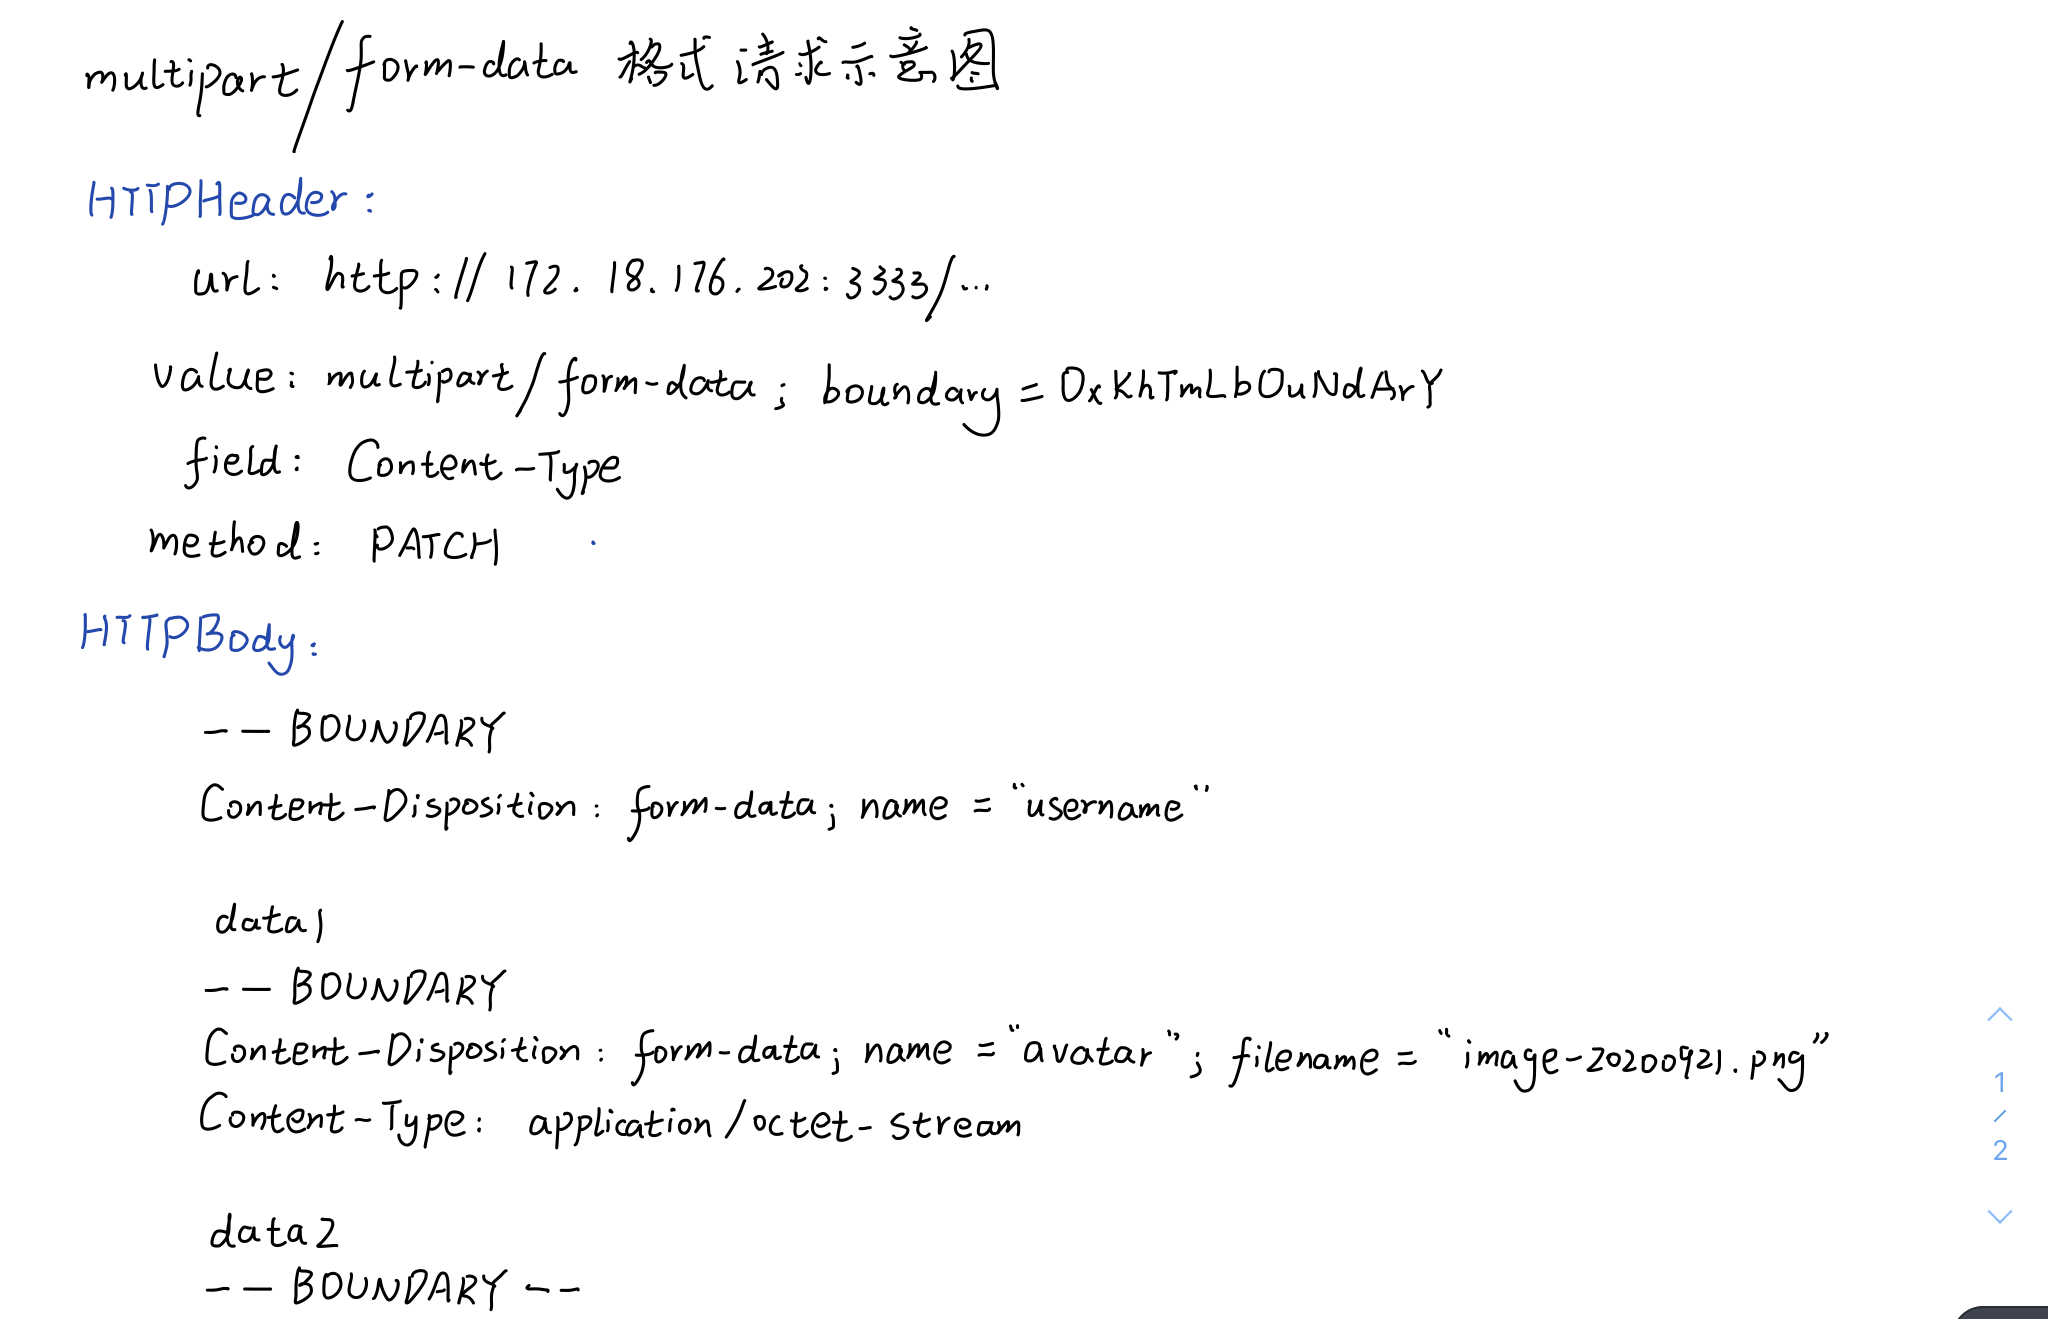 multipart/form-data 格式请求示意图
HTTPHeader:
url: http://172.18.176.202:3333/...
value: multipart/form-data; boundary=0xKhTmLbOuNdArY
field: Content-Type
method: PATCH
HTTPBody:
--BOUNDARY
Content-Disposition: form-data; name = "username"
data1
--BOUNDARY
Content-Disposition: form-data; name = "avatar"; filename = "image-20200921.png"
Content-Type: application/octet-stream
data2
--BOUNDARY--
1
/
2